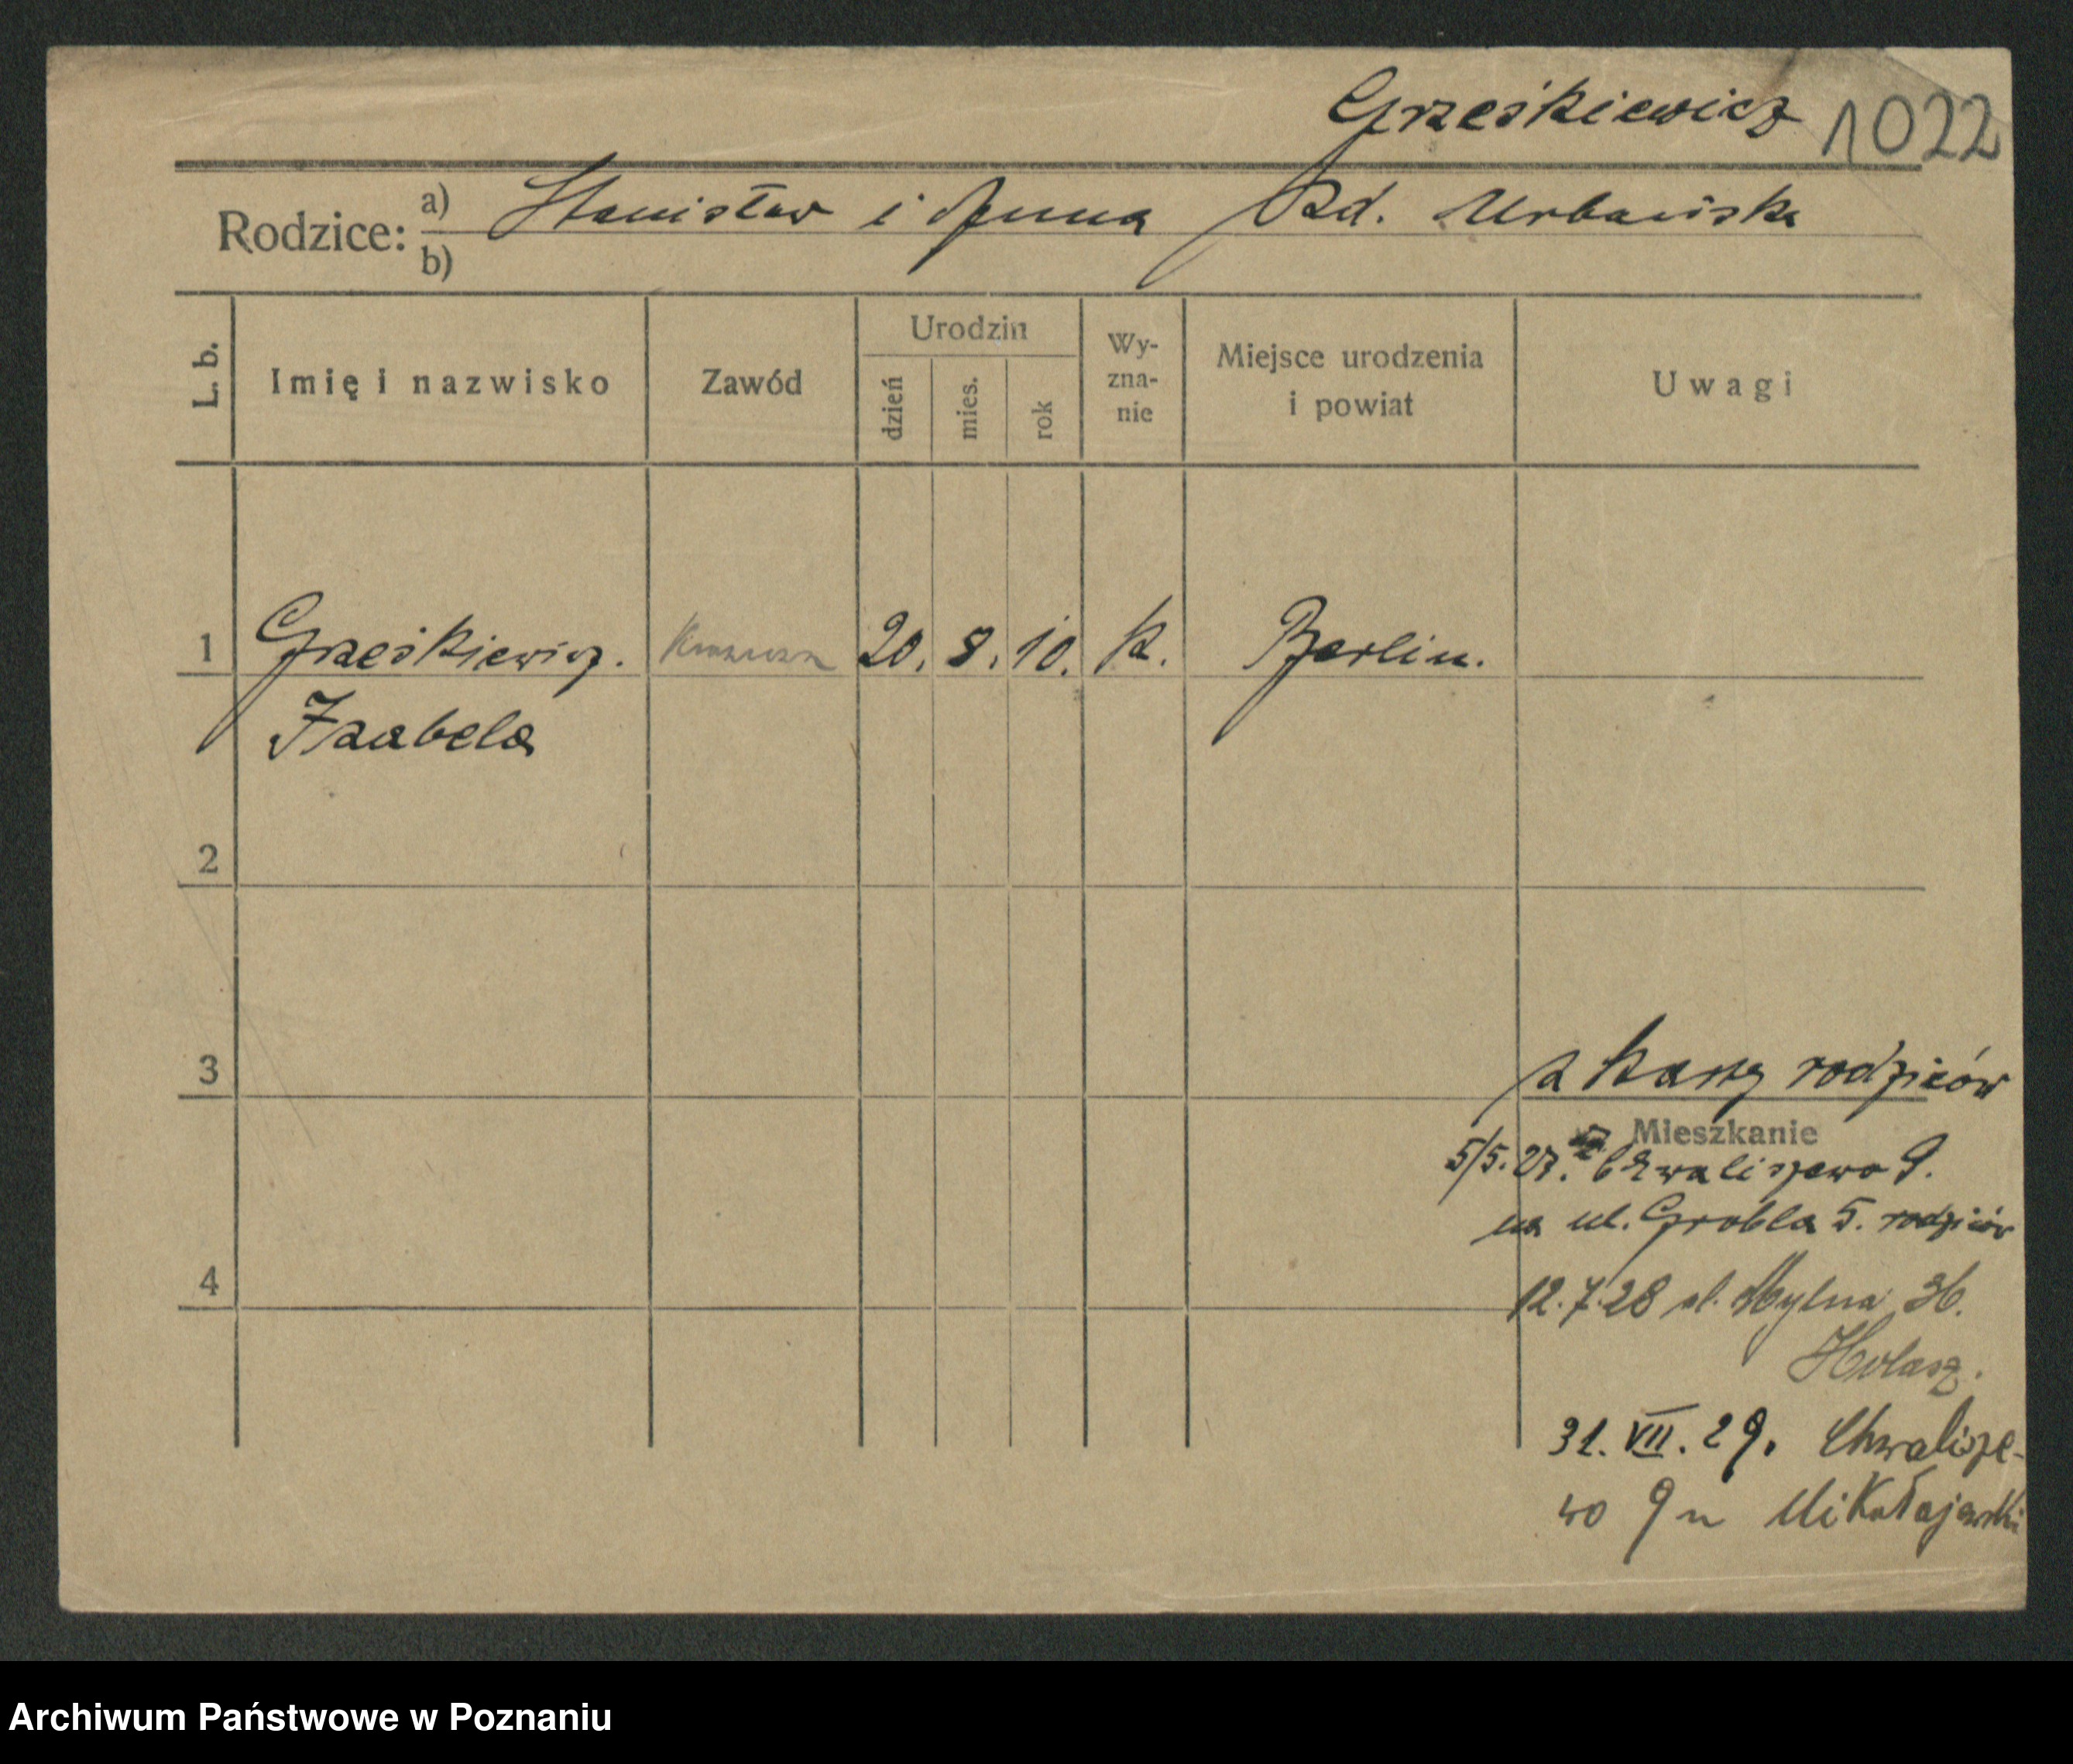 Grześkiewicz 1022
Rodzice: a) Stanisław i Anna zd. Urbańska
b)
L. b.
Imię i nazwisko
Zawód
Urodzin
dzień
mies.
rok
Wy-
zna-
nie
Miejsce urodzenia
i powiat
Uwagi
1 Grześkiewicz. 20. 8. 10. k. Berlin.
Izabela
2
3
z karty rodziców
Mieszkanie
5/5. 27. Chwaliszewo 9.
na ul. Grobla 5. rodziców
4
12.7.28 ul. Mylna 36.
31. VII. 29. Chwalisze-
wo 9 u Mikołajewski
Archiwum Państwowe w Poznaniu